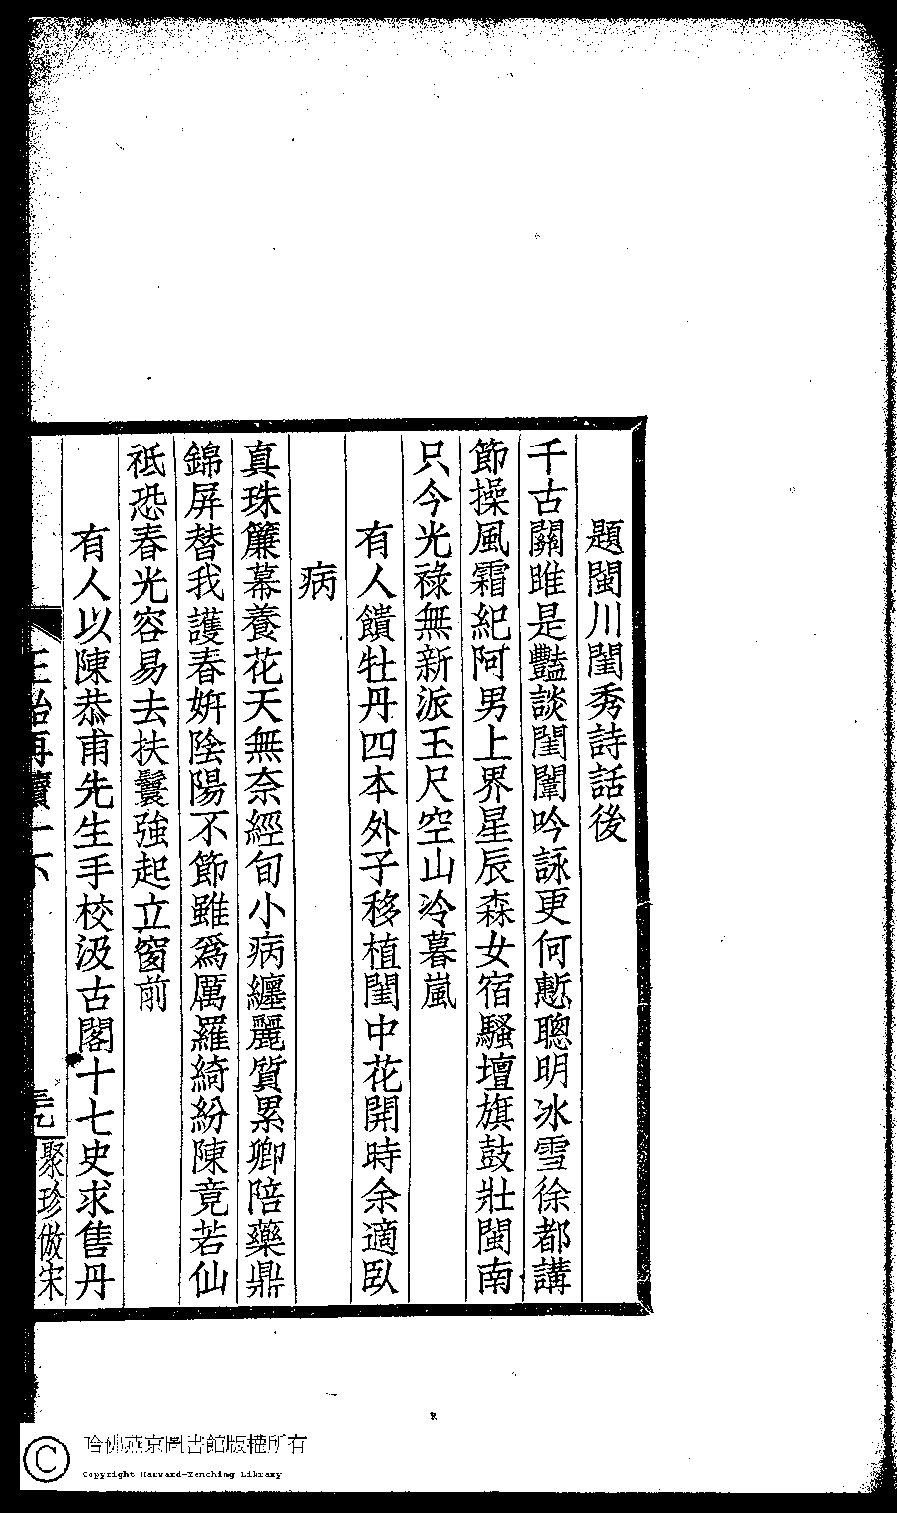 題閩川閨秀詩話後
千古關雎是豔談閨闈吟詠更何慙聰明冰雪徐都講
節操風霜紀阿男上界星辰森女宿騷壇旗鼓壯閩南
只今光祿無新派玉尺空山冷暮嵐
有人饋牡丹四本外子移植閨中花開時余適臥
病
真珠簾幕養花天無奈經旬小病纏麗質累卿陪藥鼎
錦屏替我護春姸陰陽不節雖爲厲羅綺紛陳竟若仙
祇恐春光容易去扶鬟強起立窗前
有人以陳恭甫先生手校汲古閣十七史求售丹
聚珍倣宋
哈佛燕京圖書館版權所有
Copyright Harvard-Yenching Library